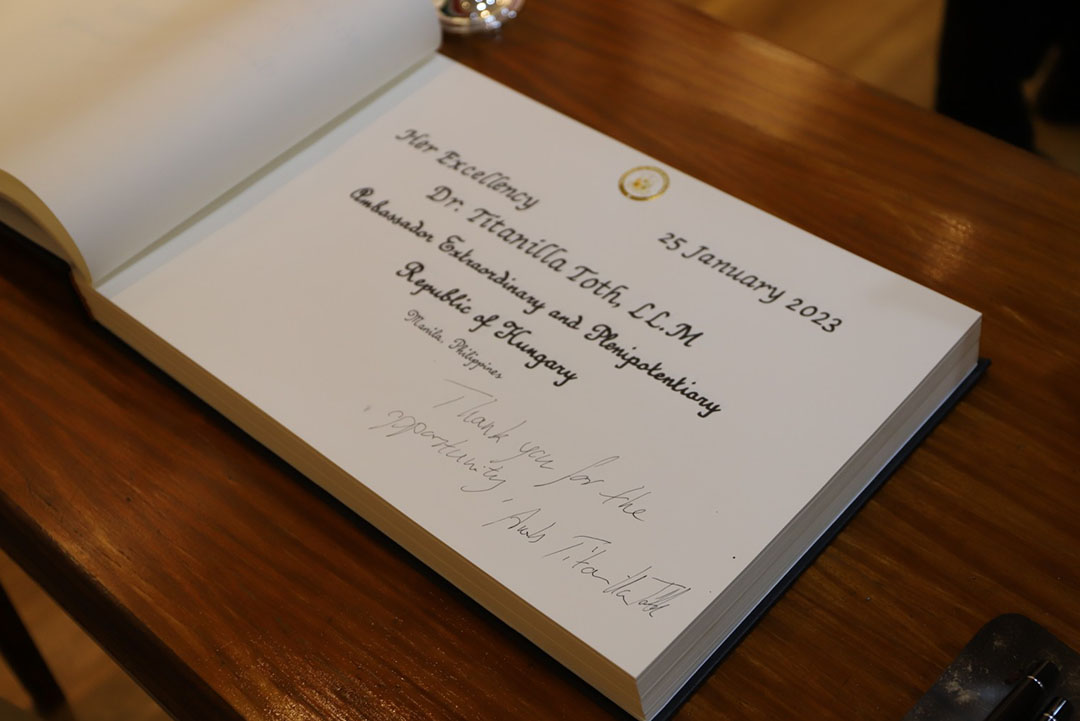 25 January 2023
Her Excellency
Dr. Titanilla Toth, LL.M
Ambassador Extraordinary and Plenipotentiary
Republic of Hungary
Manila, Philippines
Thank you for the
opportunity,
Amb Titanilla Toth